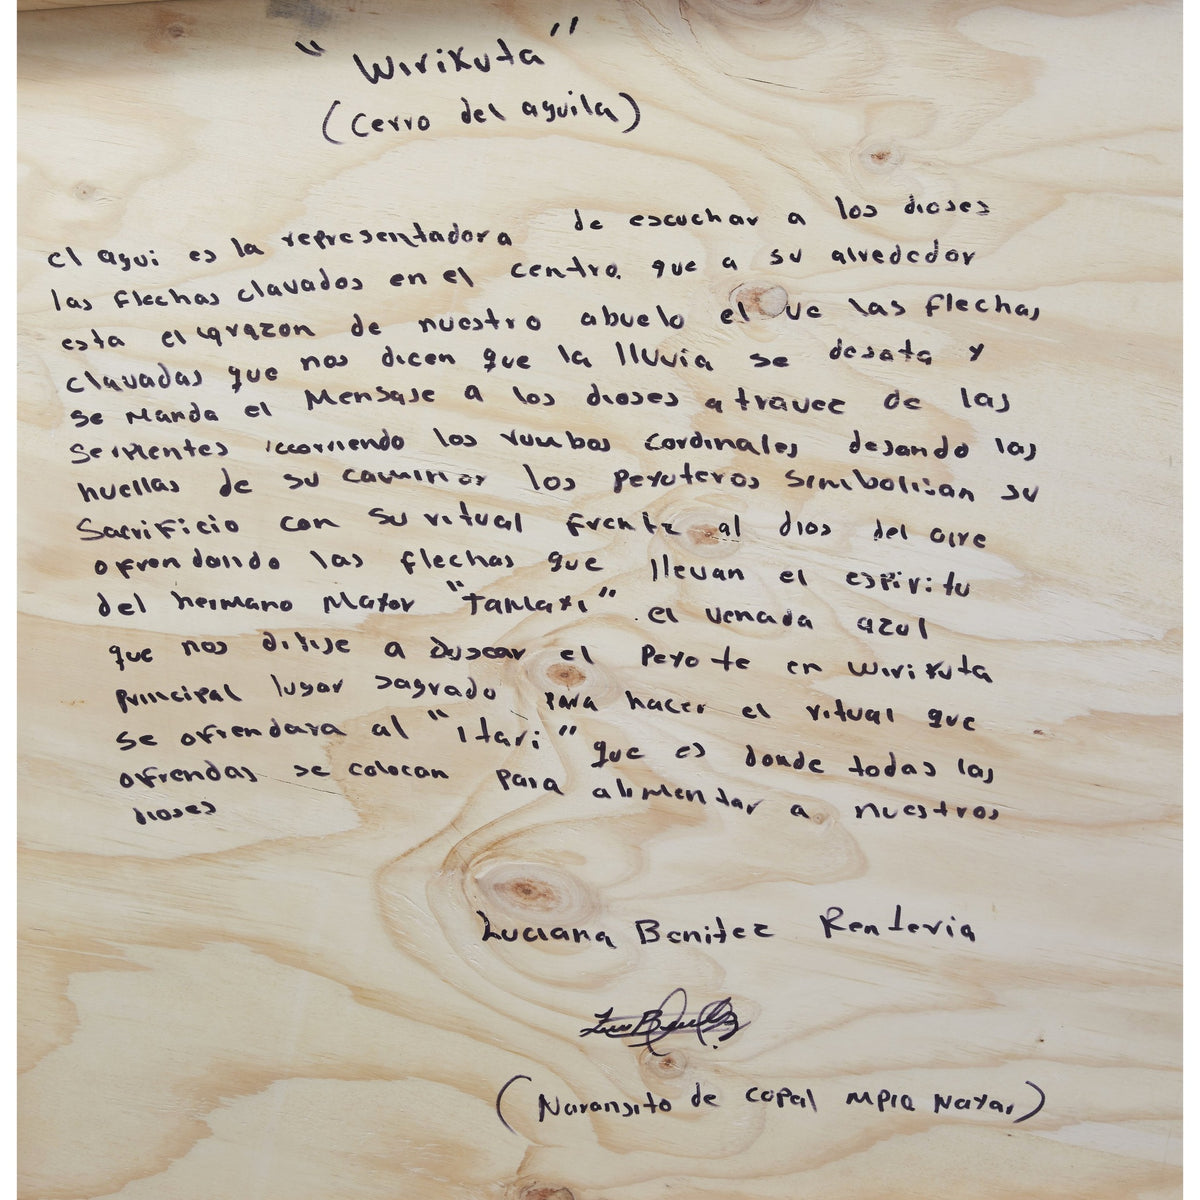 "Wirikuta"
(Cerro del aguila)
el agui es la representadora de escuchar a los dioses
las flechas clavados en el centro. que a su alrededor
esta el corazon de nuestro abuelo el ve las flechas
clavadas que nos dicen que la lluvia se desata y
se Manda el Mensaje a los dioses atravez de las
Serpientes recorriendo los rumbos cordinales dejando las
huellas de su caminar los peyoteros simbolisan su
Sacrificio con su ritual frente al dios del aire
ofrendando las flechas que llevan el espiritu
del hermano Mayor "Tamaxi" el venada azul
que nos dirije a buscar el Peyote en Wirikuta
principal lugar sagrado para hacer el ritual que
se ofrendara al "itari" que es donde todas las
ofrendas se colocan para alimentar a nuestros
dioses
Luciana Benitez Renteria
(Naranjito de copal Mpio Nayar)